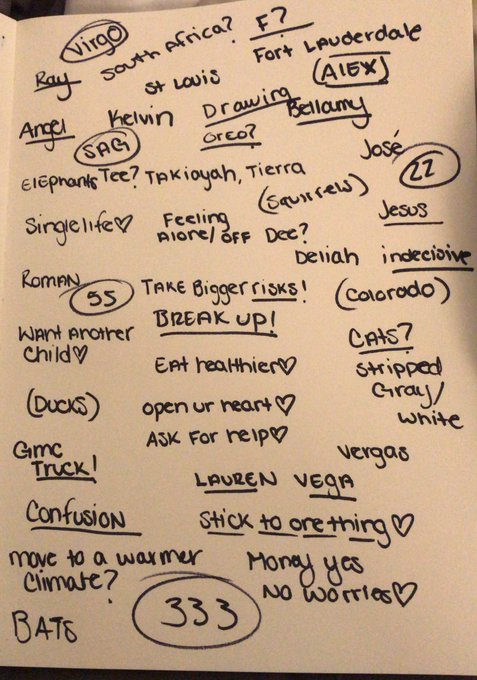 Virgo South Africa? F?
Ray St Louis Fort Lauderdale
(ALEX)
Angel Kelvin Drawing Bellamy
SAG OREO? José
Elephants Tee? TAKiayah, Tierra 22
(Squirrels) Jesus
Singlelife♡ Feeling
Alone/OFF Dee?
Deliah indecisive
ROMAN 55 TAKE Bigger risks! (Colorado)
BREAK UP!
Want Another
child♡ CATS?
Eat healthier♡ stripped
Gray/
White
(Ducks) open ur heart♡
ASK For help♡
Gmc
Truck! Vergas
LAUREN VEGA
Confusion Stick to one thing♡
move to a warmer
climate? Money yes
No worries♡
333
BATS